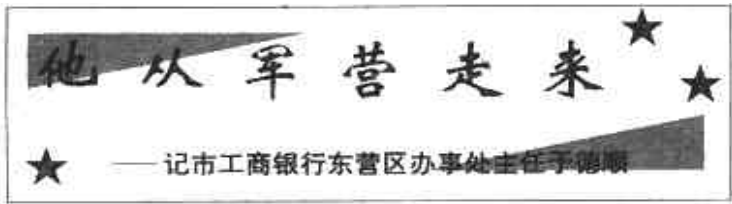 他从军营走来
——记市工商银行东营区办事处主任于德顺